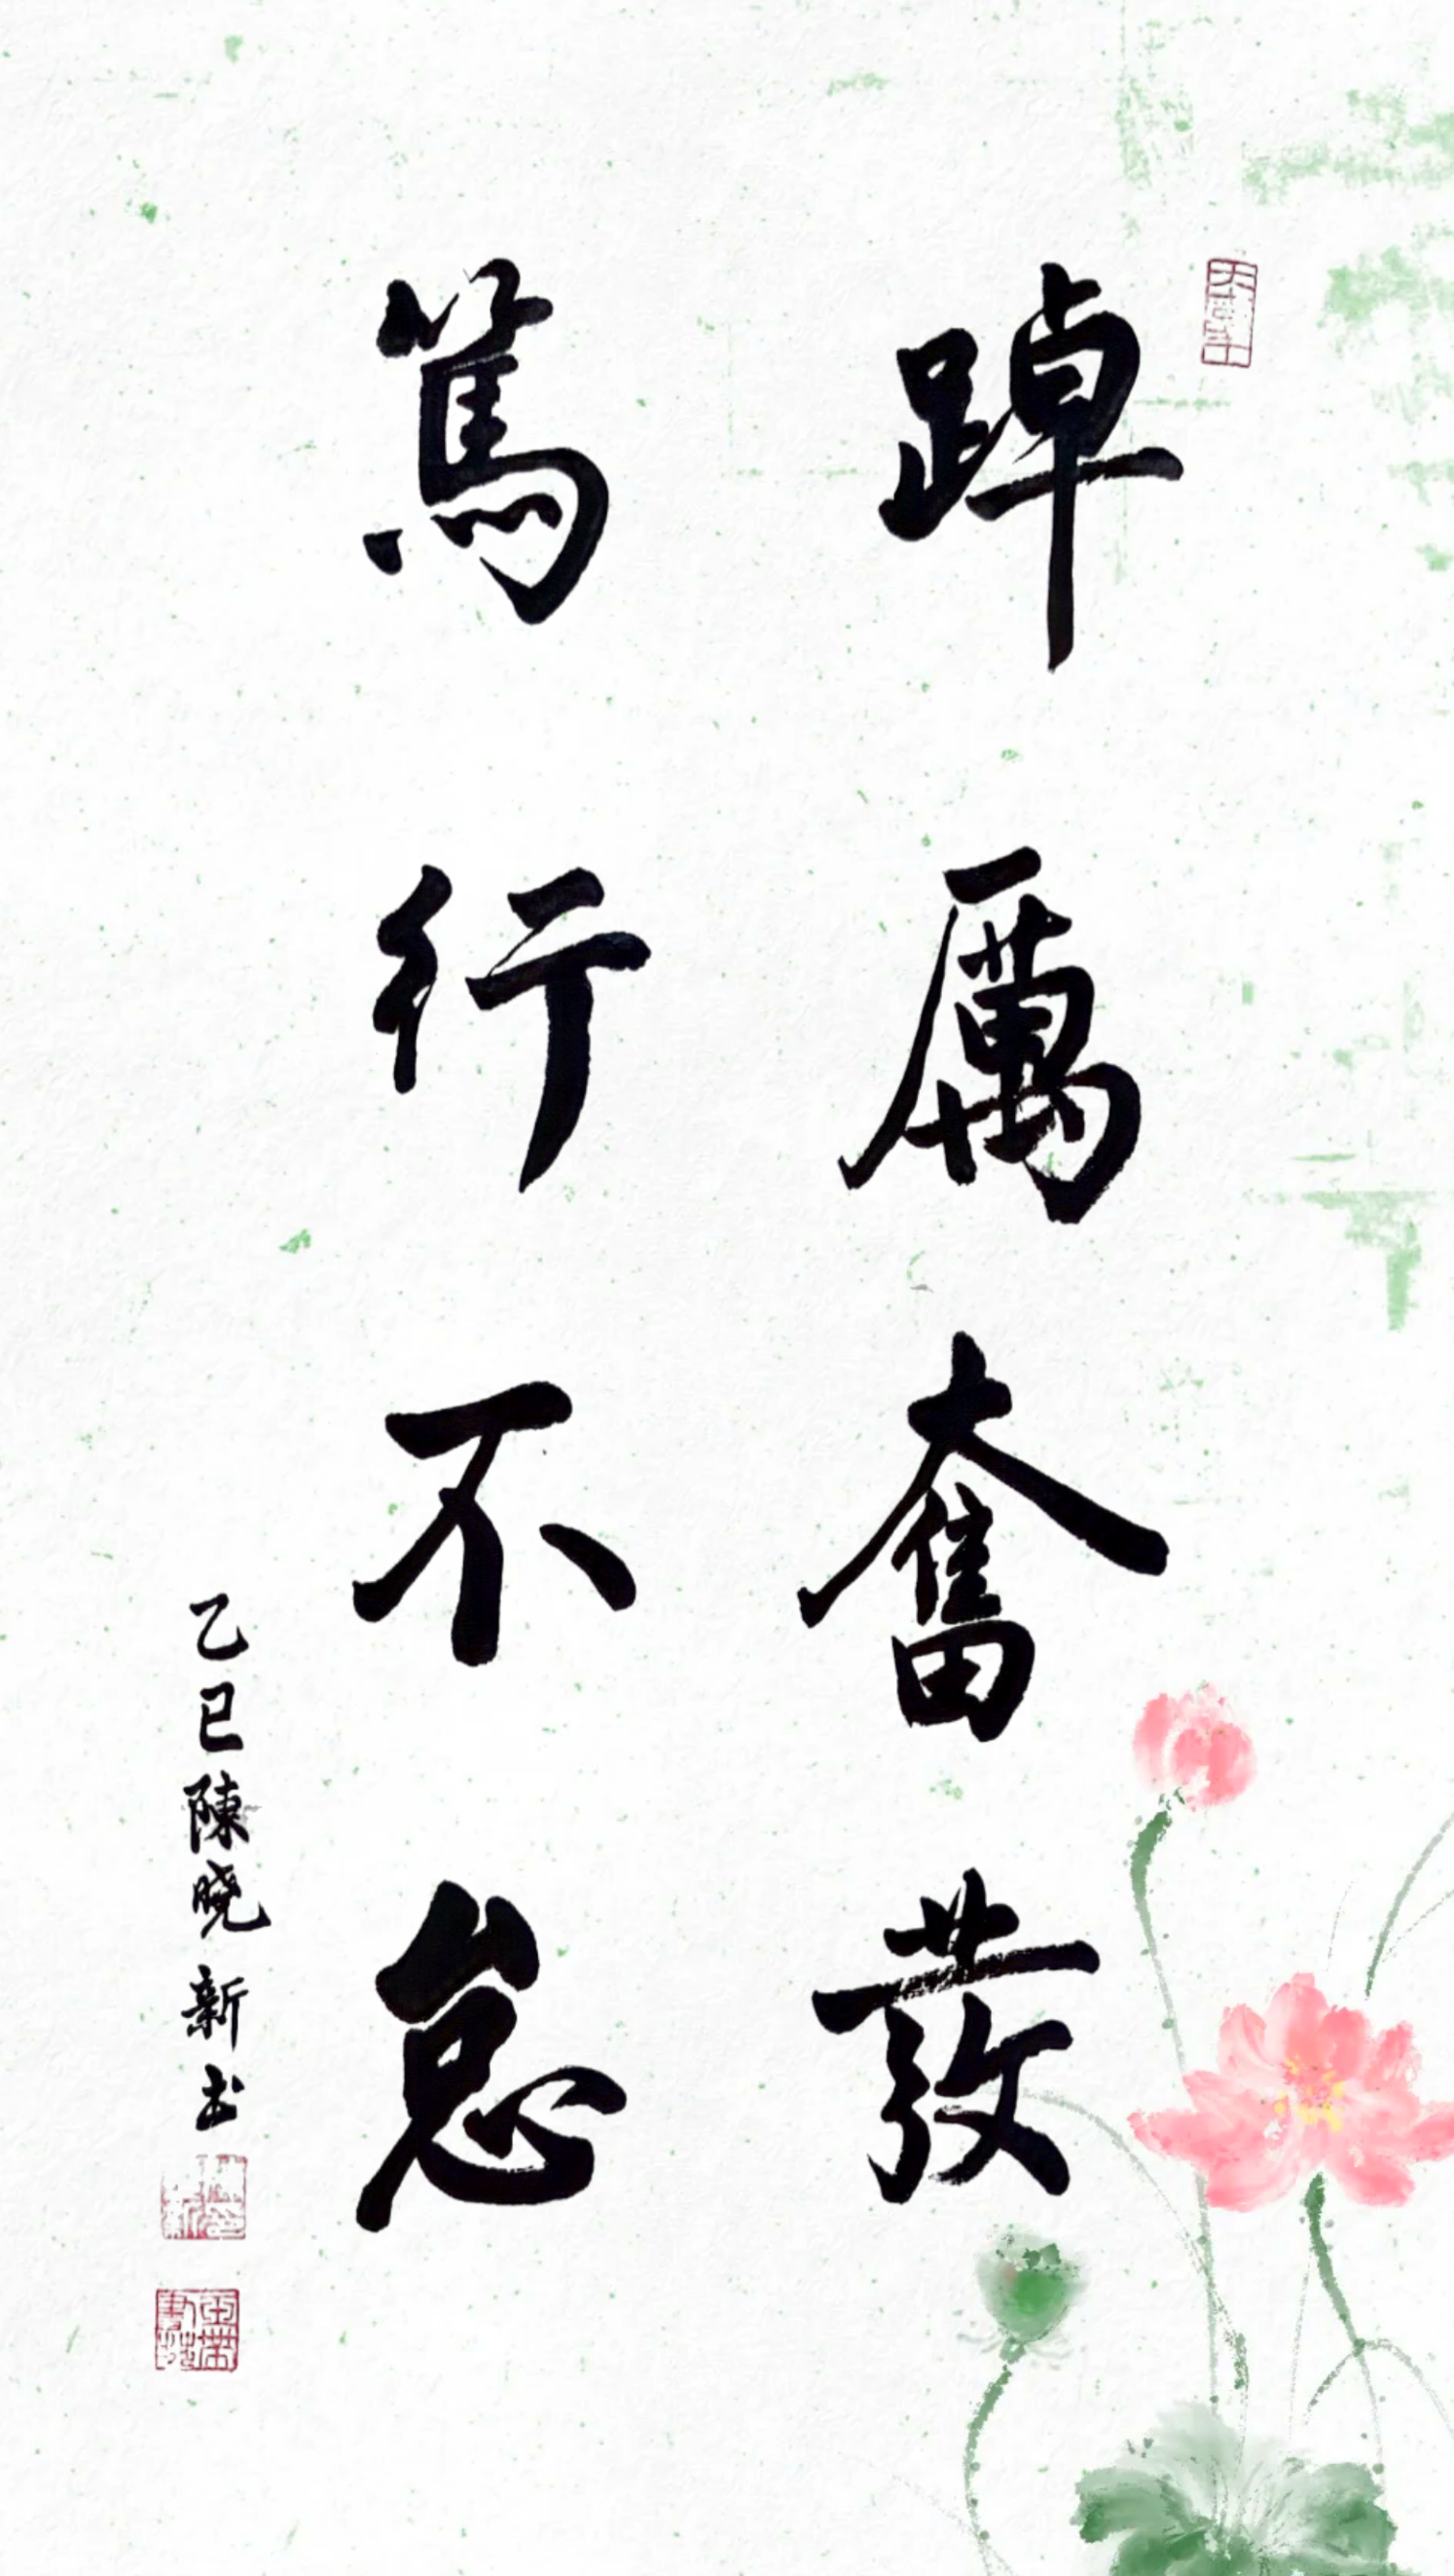 踔厲奮發
篤行不怠
乙巳陳曉新书